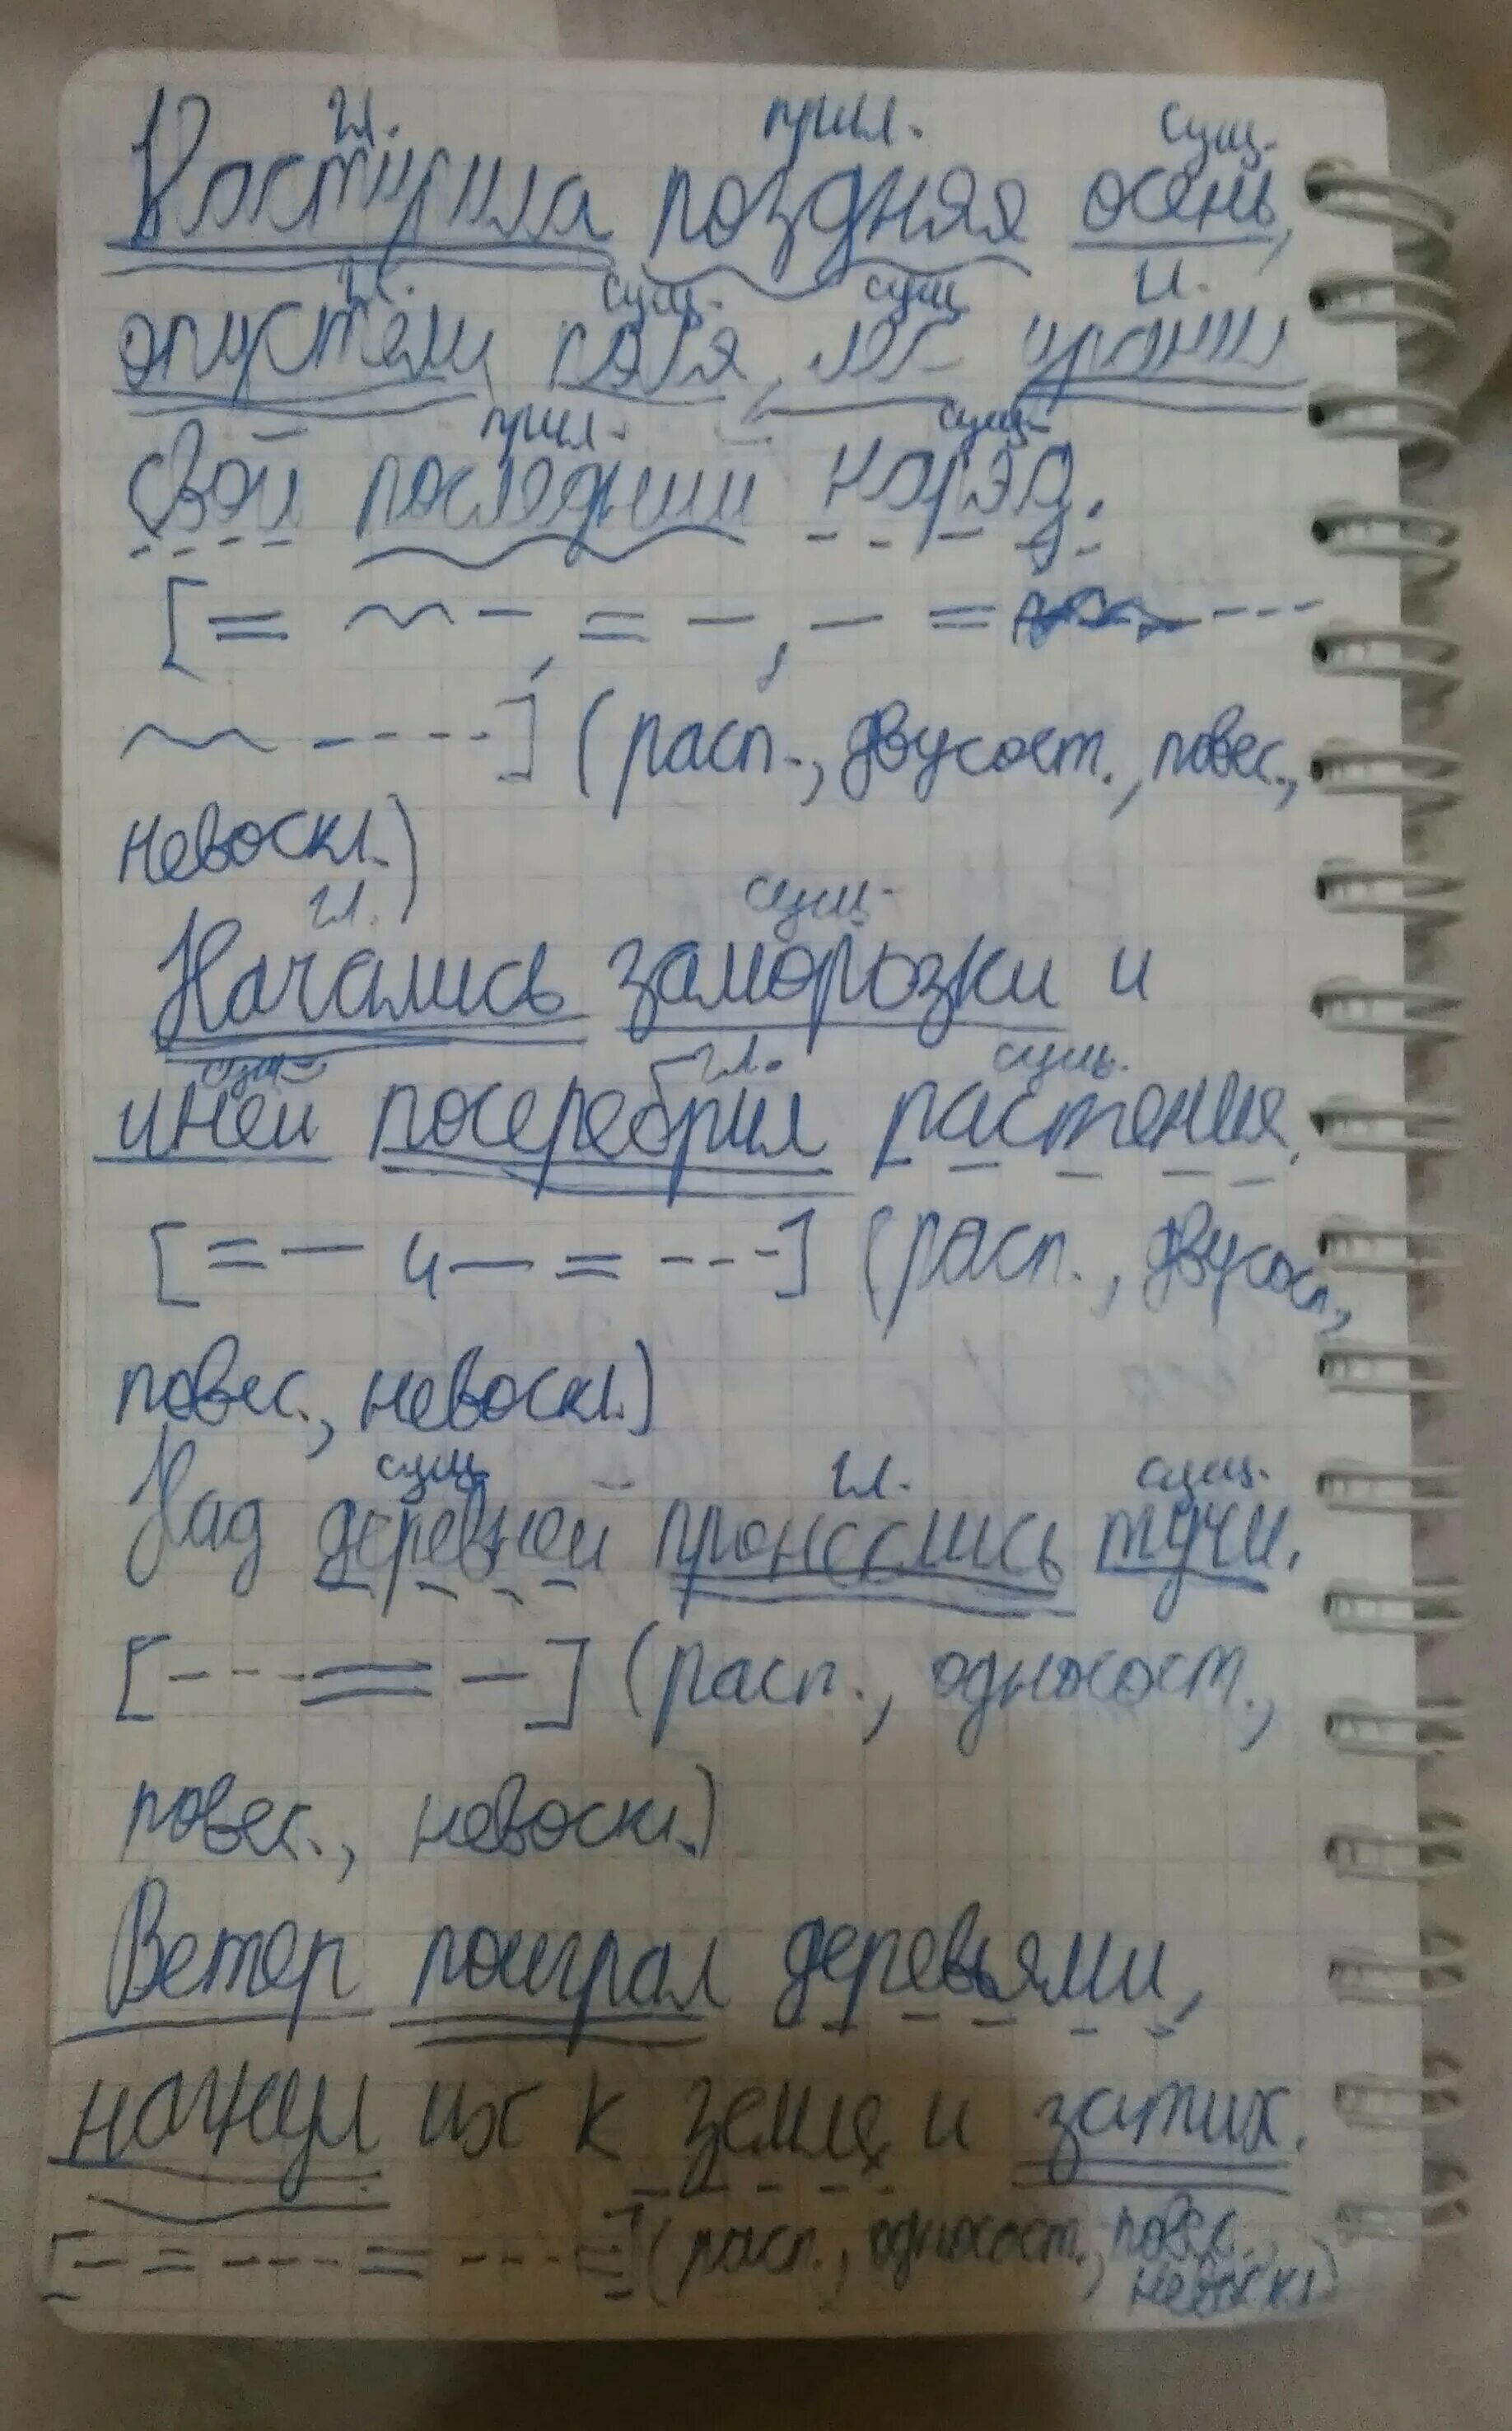 гл. прил. сущ.
Наступила поздняя осень,
гл. сущ. сущ. гл.
опустели поля, лес
прил. сущ.
свой последний наряд.
[= ~ –, = –, – = ----
~ ----] (расп., двусост., повес.,
невоскл.)
гл. сущ.
Начались заморозки и
сущ. гл. сущ.
иней посеребрил растения.
[= – и – = ---] (расп., двусост.,
повес., невоскл.)
сущ. гл. сущ.
Над деревней пронеслись тучи.
[--- = –] (расп., односост.,
повес., невоскл.)
Ветер поиграл деревьями,
их к земле и затих.
[– = --- = --- =] (расп., односост., повес.,
невоскл.)